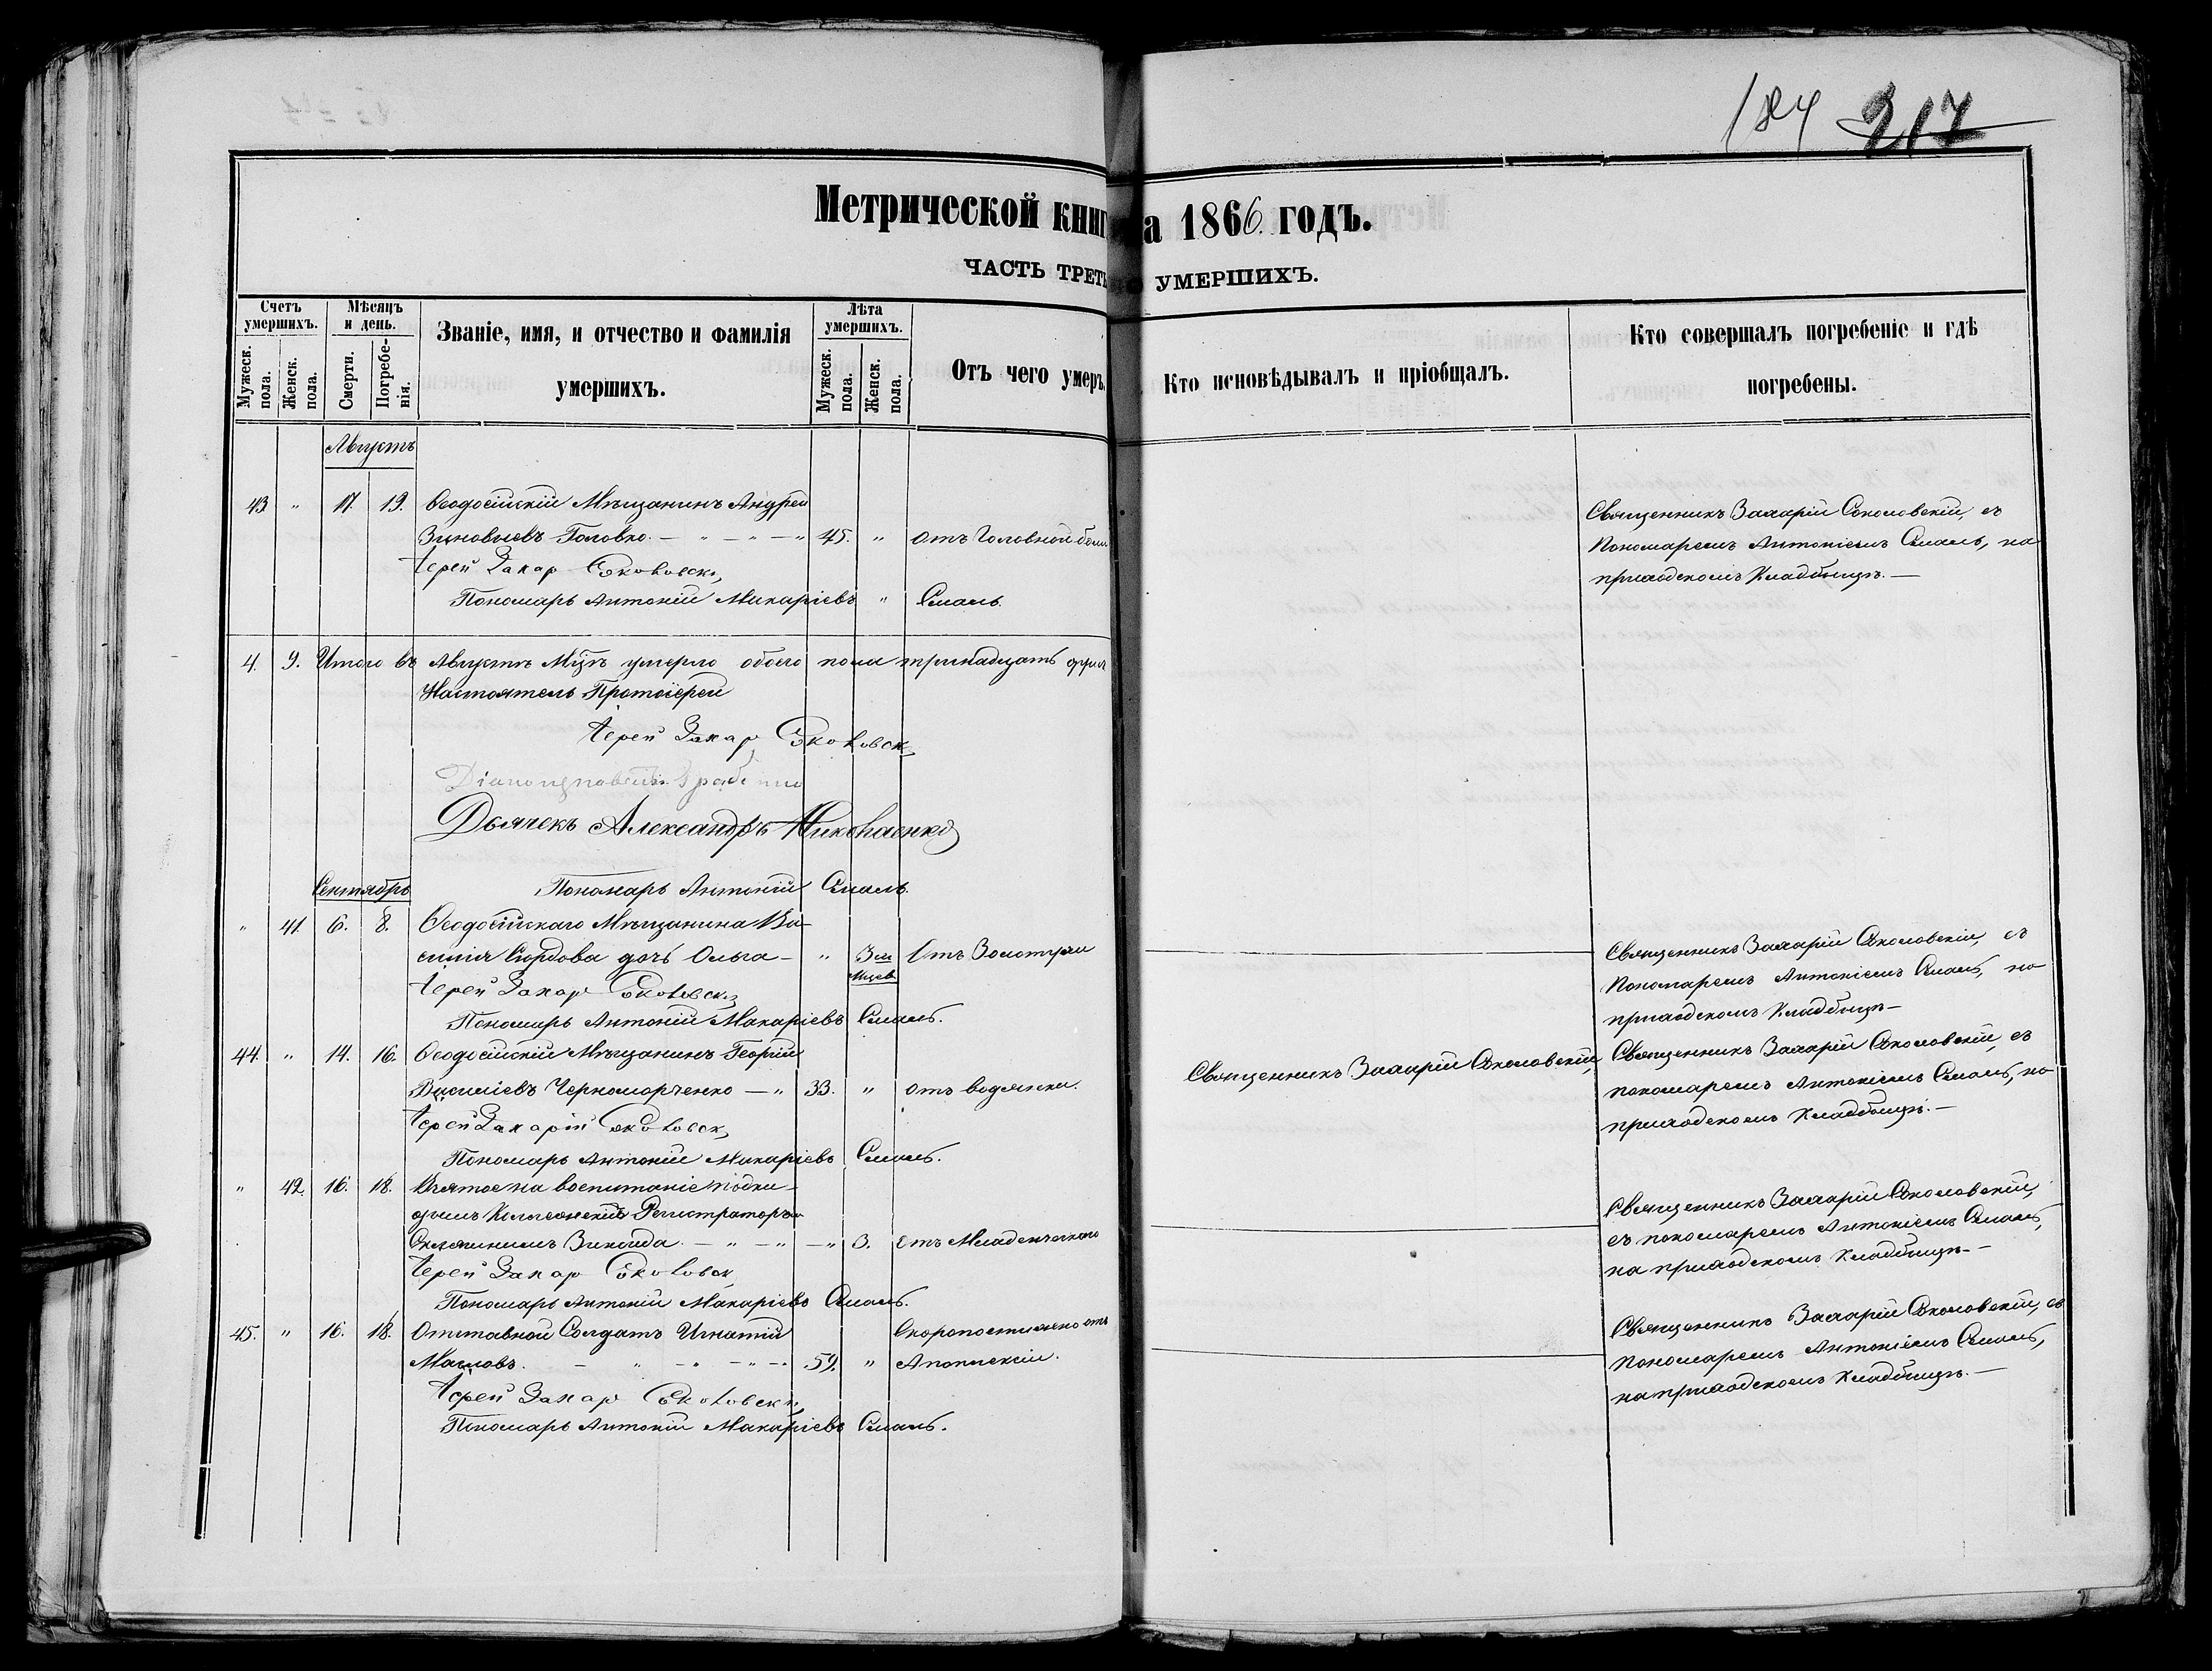 184 217
Метрической книг а 1866. годъ.
ЧАСТЬ ТРЕТЬ УМЕРШИХЪ.
Счетъ умершихъ.
Мужеск. пола.
Женск. пола.
Мѣсяцъ и день.
Смерти.
Погребе-нія.
Званіе, имя, и отчество и фамилія
умершихъ.
Лѣта умершихъ.
Мужеск. пола.
Женск. пола.
Отъ чего умеръ.
Кто исповѣдывалъ и пріобщалъ.
Кто совершалъ погребеніе и гдѣ
погребены.
Августъ
43 " 17. 19. Ѳеодосійскій Мѣщанинъ Андрей
Зиновьевъ Головко. — " — " — " 45. " отъ Головной боли
Іерей Захар
Пономарь Антоній Макаріевъ " Смаль.
Священникъ Захарій Соколовскій, съ
Пономаремъ Антоніемъ Смаль, на
приходскомъ Кладбищѣ. —
4. 9. Итого въ Августѣ Мцѣ умерло обоего пола тринадцать душъ
Настоятель Протоіерей
Іерей Захар
Дьячекъ Александръ Николаенко
Пономарь Антоній Смаль.
Сентябрь
" 41 6. 8. Ѳеодосійскаго Мѣщанина Ва-
силія дочь Ольга — " 3 хъ мцев Отъ Золотухи
Іерей Захар
Пономарь Антоній Макаріевъ Смаль.
Священникъ Захарій Соколовскій, съ
Пономаремъ Антоніемъ Смаль, на
приходскомъ Кладбищѣ —
44. " 14. 16. Ѳеодосійскій Мѣщанинъ Георгій
Василіевъ Черноморченко — " 33. " отъ водянки.
Іерей Захарій
Пономарь Антоній Макаріевъ Смаль.
Священникъ Захарій Соколовскій,
Священникъ Захарій Соколовскій, съ
пономаремъ Антоніемъ Смаль, на
приходскомъ Кладбищѣ. —
" 42. 16. 18. Взятое на воспитаніе подки-
Регистраторъ
Зинаида. — " — " — " 3. Отъ Младенческаго
Іерей Захар
Пономарь Антоній Макаріевъ Смаль.
Священникъ Захарій Соколовскій,
съ пономаремъ Антоніемъ Смаль,
на приходскомъ Кладбищѣ. —
45. " 16. 18. Отставной Солдатъ Игнатій Скоропостижно отъ
Масловъ. — " — " — " — 59. " Апоплексіи.
Іерей Захар
Пономарь Антоній Макаріевъ Смаль.
Священникъ Захарій Соколовскій, съ
Пономаремъ Антоніемъ Смаль,
на приходскомъ Кладбищѣ. —